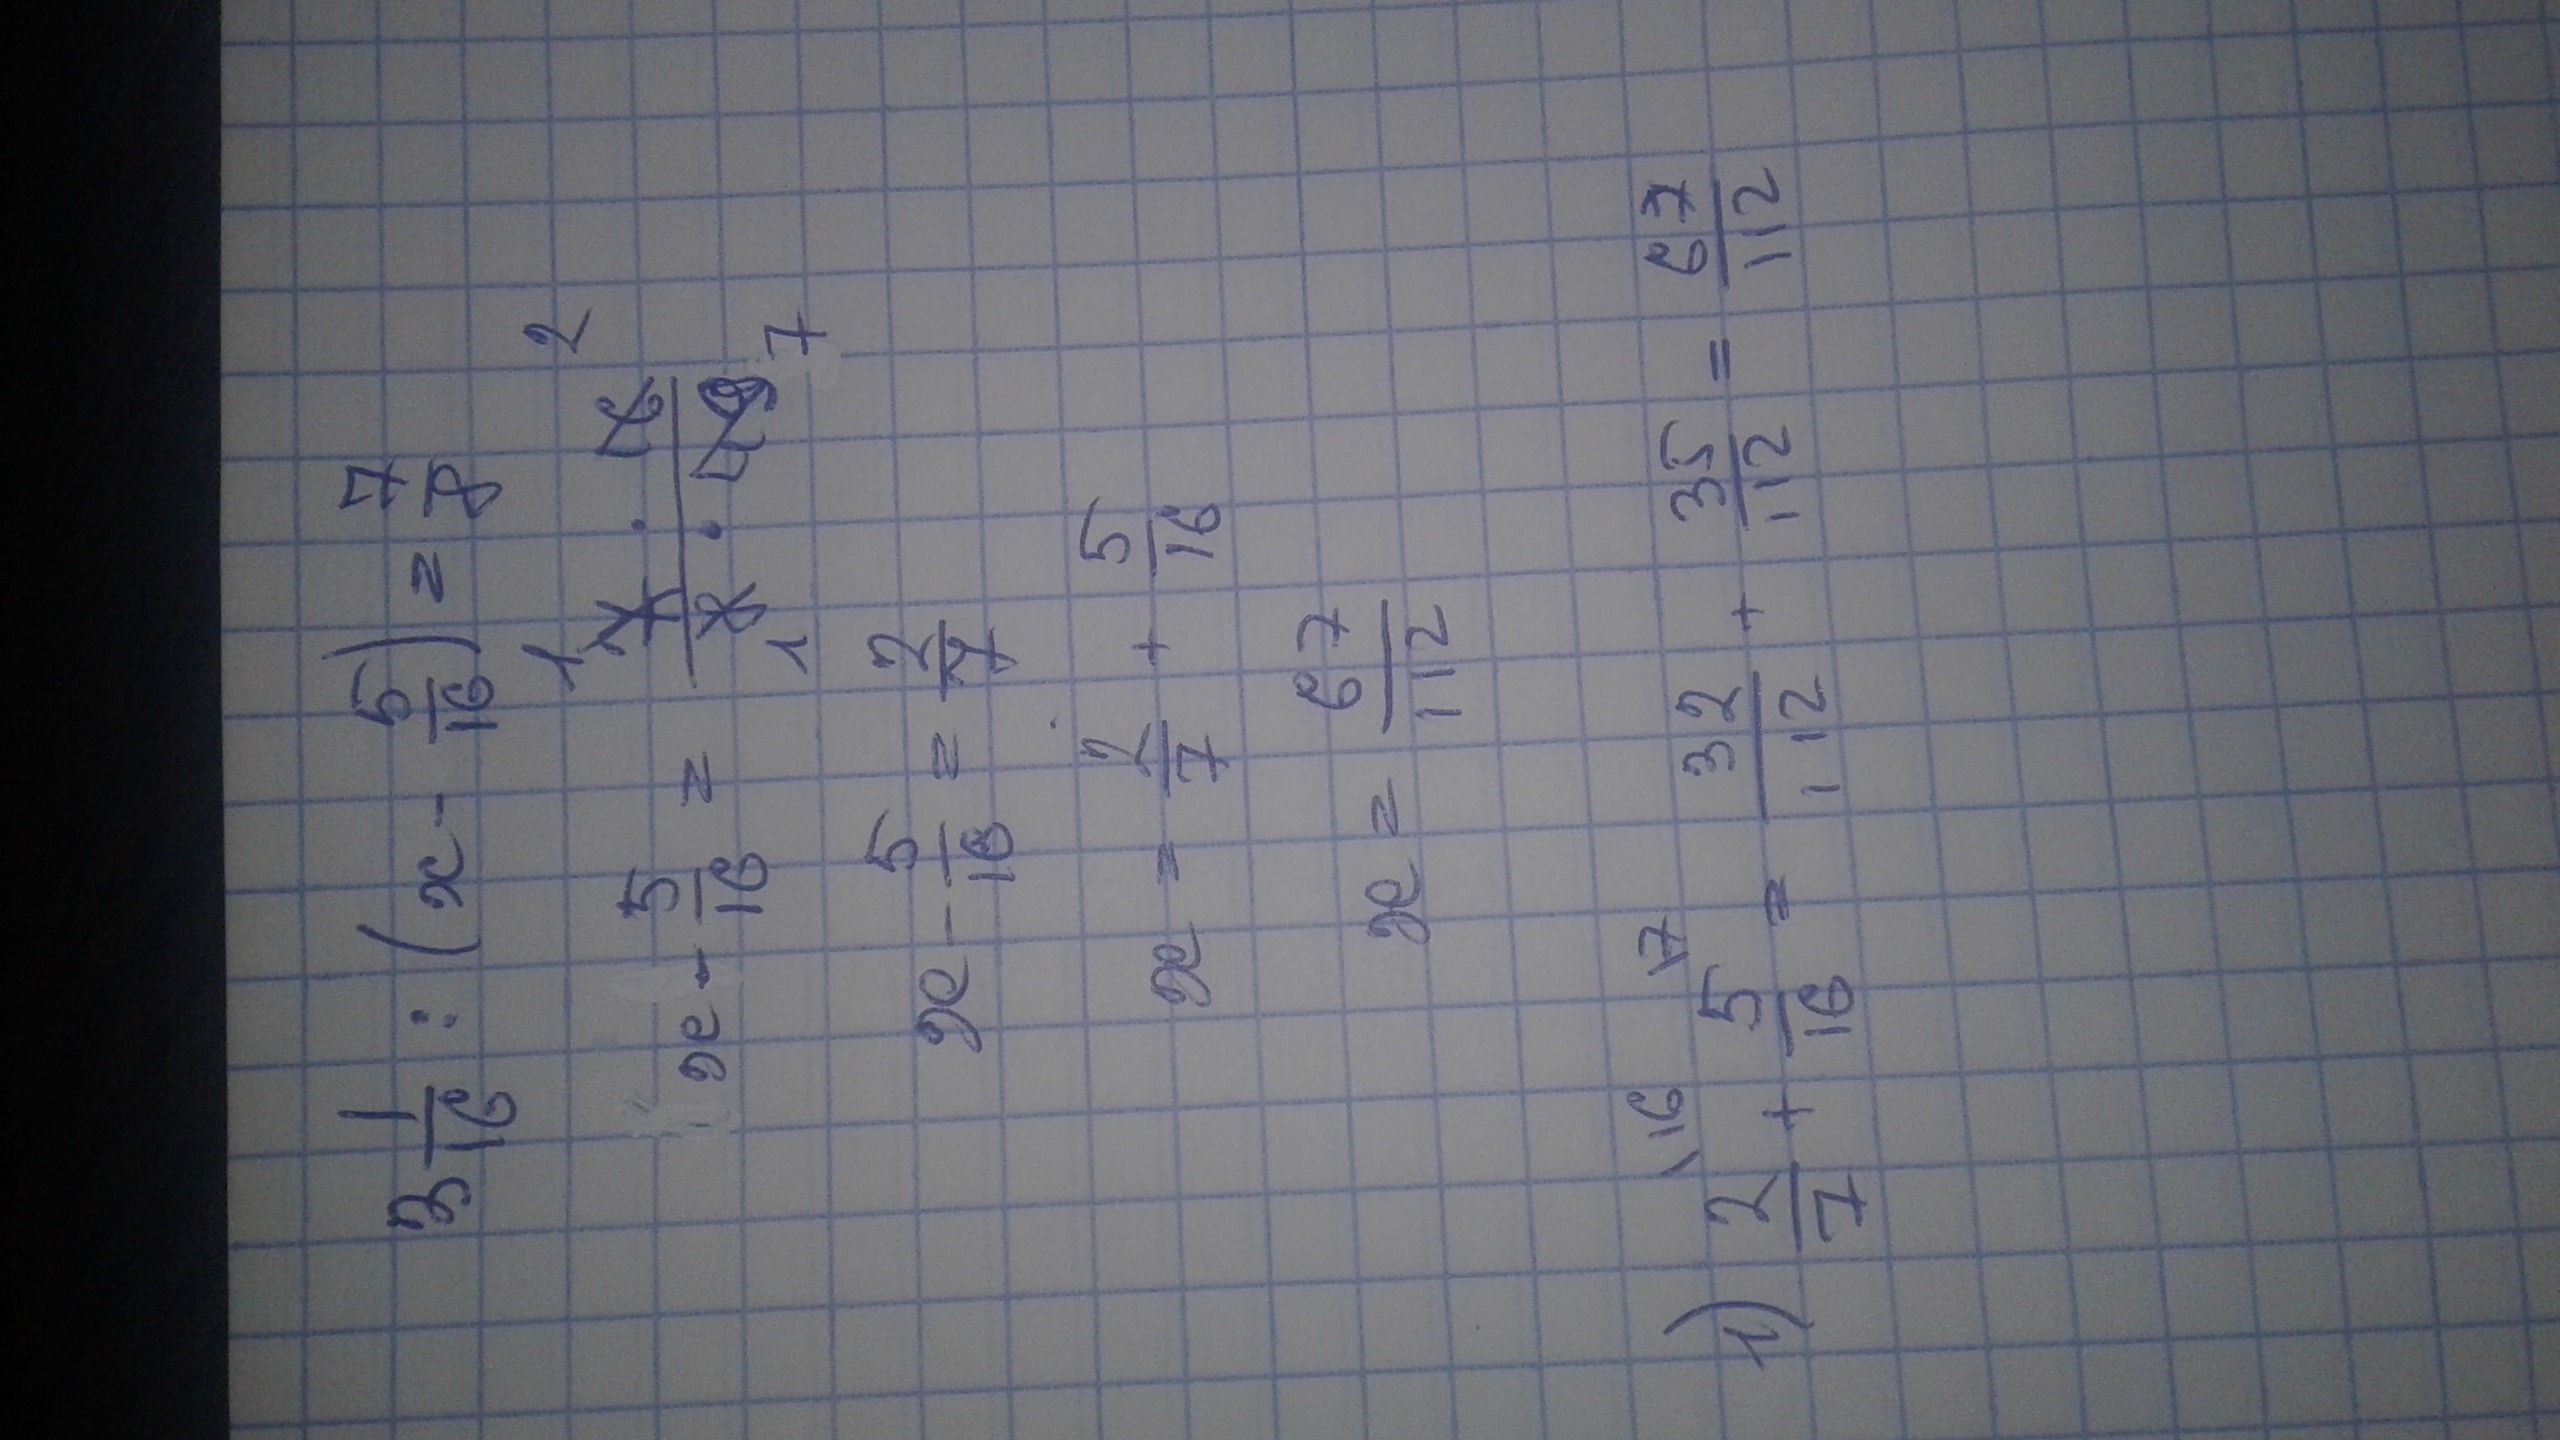 3 1/16 : (x - 5/16) = 7/8
x - 5/16 = 7 · 16 / 8 · 49 1 2 1 7
x - 5/16 = 2/7
x = 2/7 + 5/16
x = 67/112
1) 2/7 \16 + 5/16 \7 = 32/112 + 35/112 = 67/112